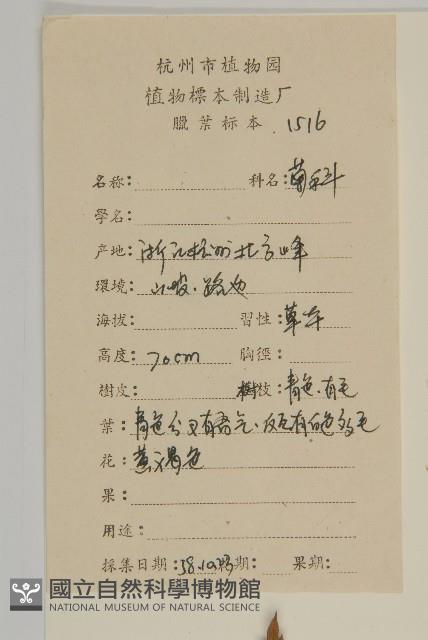 杭州市植物园
植物標本制造厂
臘葉标本 1516
名称: 科名: 菊科
學名:
产地: 浙江杭州北高峰
環境: 山坡.路边
海拔: 習性: 草本
高度: 70cm 胸徑:
樹皮: 樹枝: 青色.有毛
葉: 青色分叉有香气.反面有白色多毛
花: 黄褐色
果:
用途:
採集日期: 58.10 期: 果期:
國立自然科學博物館
NATIONAL MUSEUM OF NATURAL SCIENCE